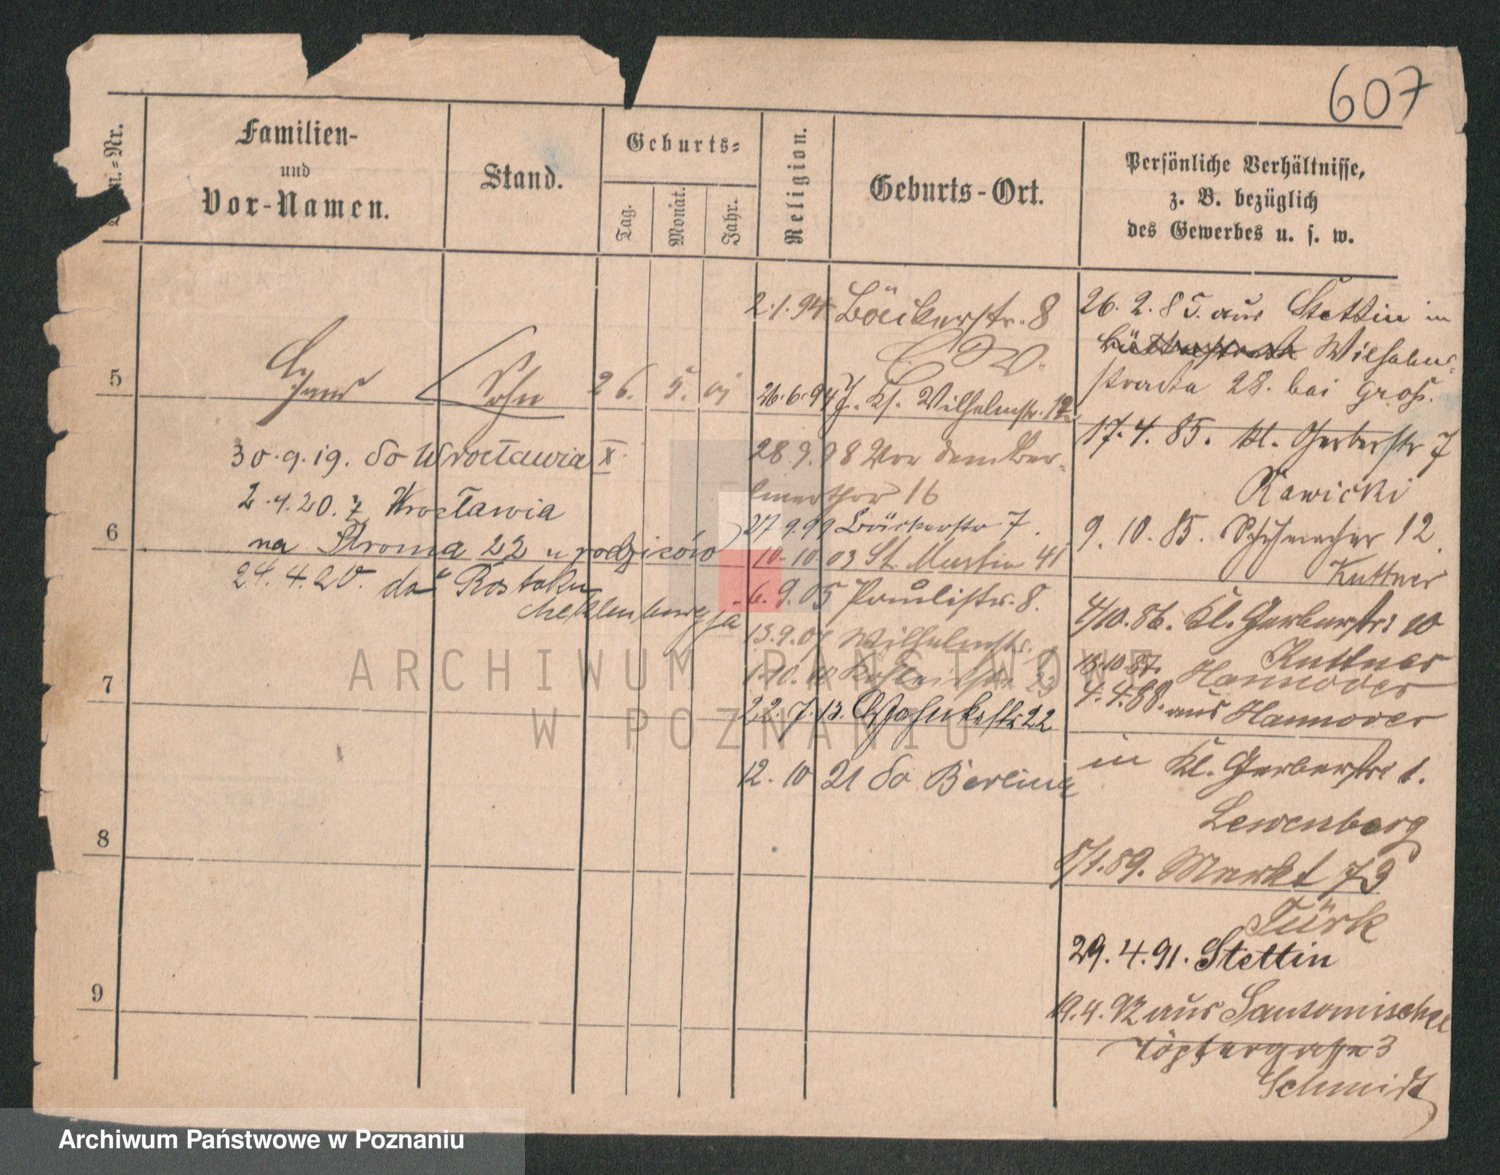 607
Nr.
Familien-
und
Vor-Namen.
Stand.
Geburts-
Tag.
Monat.
Jahr.
Religion.
Geburts-Ort.
Persönliche Verhältnisse,
z. B. bezüglich
des Gewerbes u. s. w.
5
Hans
Sohn
26. 5. 01
30.9.19. do Wrocławia X.
2.4.20. z Wrocławia
6
na Stroma 22 u rodziców
24.4.20. do Rostoku
Meklenburgja
7
8
9
2.1.94. Böckerstr. 8
26.6.94 Kl. Wilhelmstr. 12
28.9.98 Vor dem Ber-
linerthor 16
27.9.99 Bäckerstr 7.
10.10.03 St. Martin 41
6.9.05 Paulistr. 8.
13.9.07 Wilhelmstr.
22.7.13. 22
12.10 21 do Berlina
26.2.85. aus Stettin in
Wilhelms-
strasse 28. bei
17.4.85. kl. Gerberstr 7
Rawicki
9.10.85. Schumacher 12.
Kuttner
4/10.86. Kl. Gerberstr 10
Kuttner
13.10.87. Hannover
4.4.88. aus Hannover
in Kl. Gerberstr 1.
Lewenberg
5/1.89. Markt 73
Türk
29.4.91. Stettin
19.4.92 aus Santomischel
Töpfergasse 3
Schmidt
ARCHIWUM PAŃSTWOWE
W POZNANIU
Archiwum Państwowe w Poznaniu